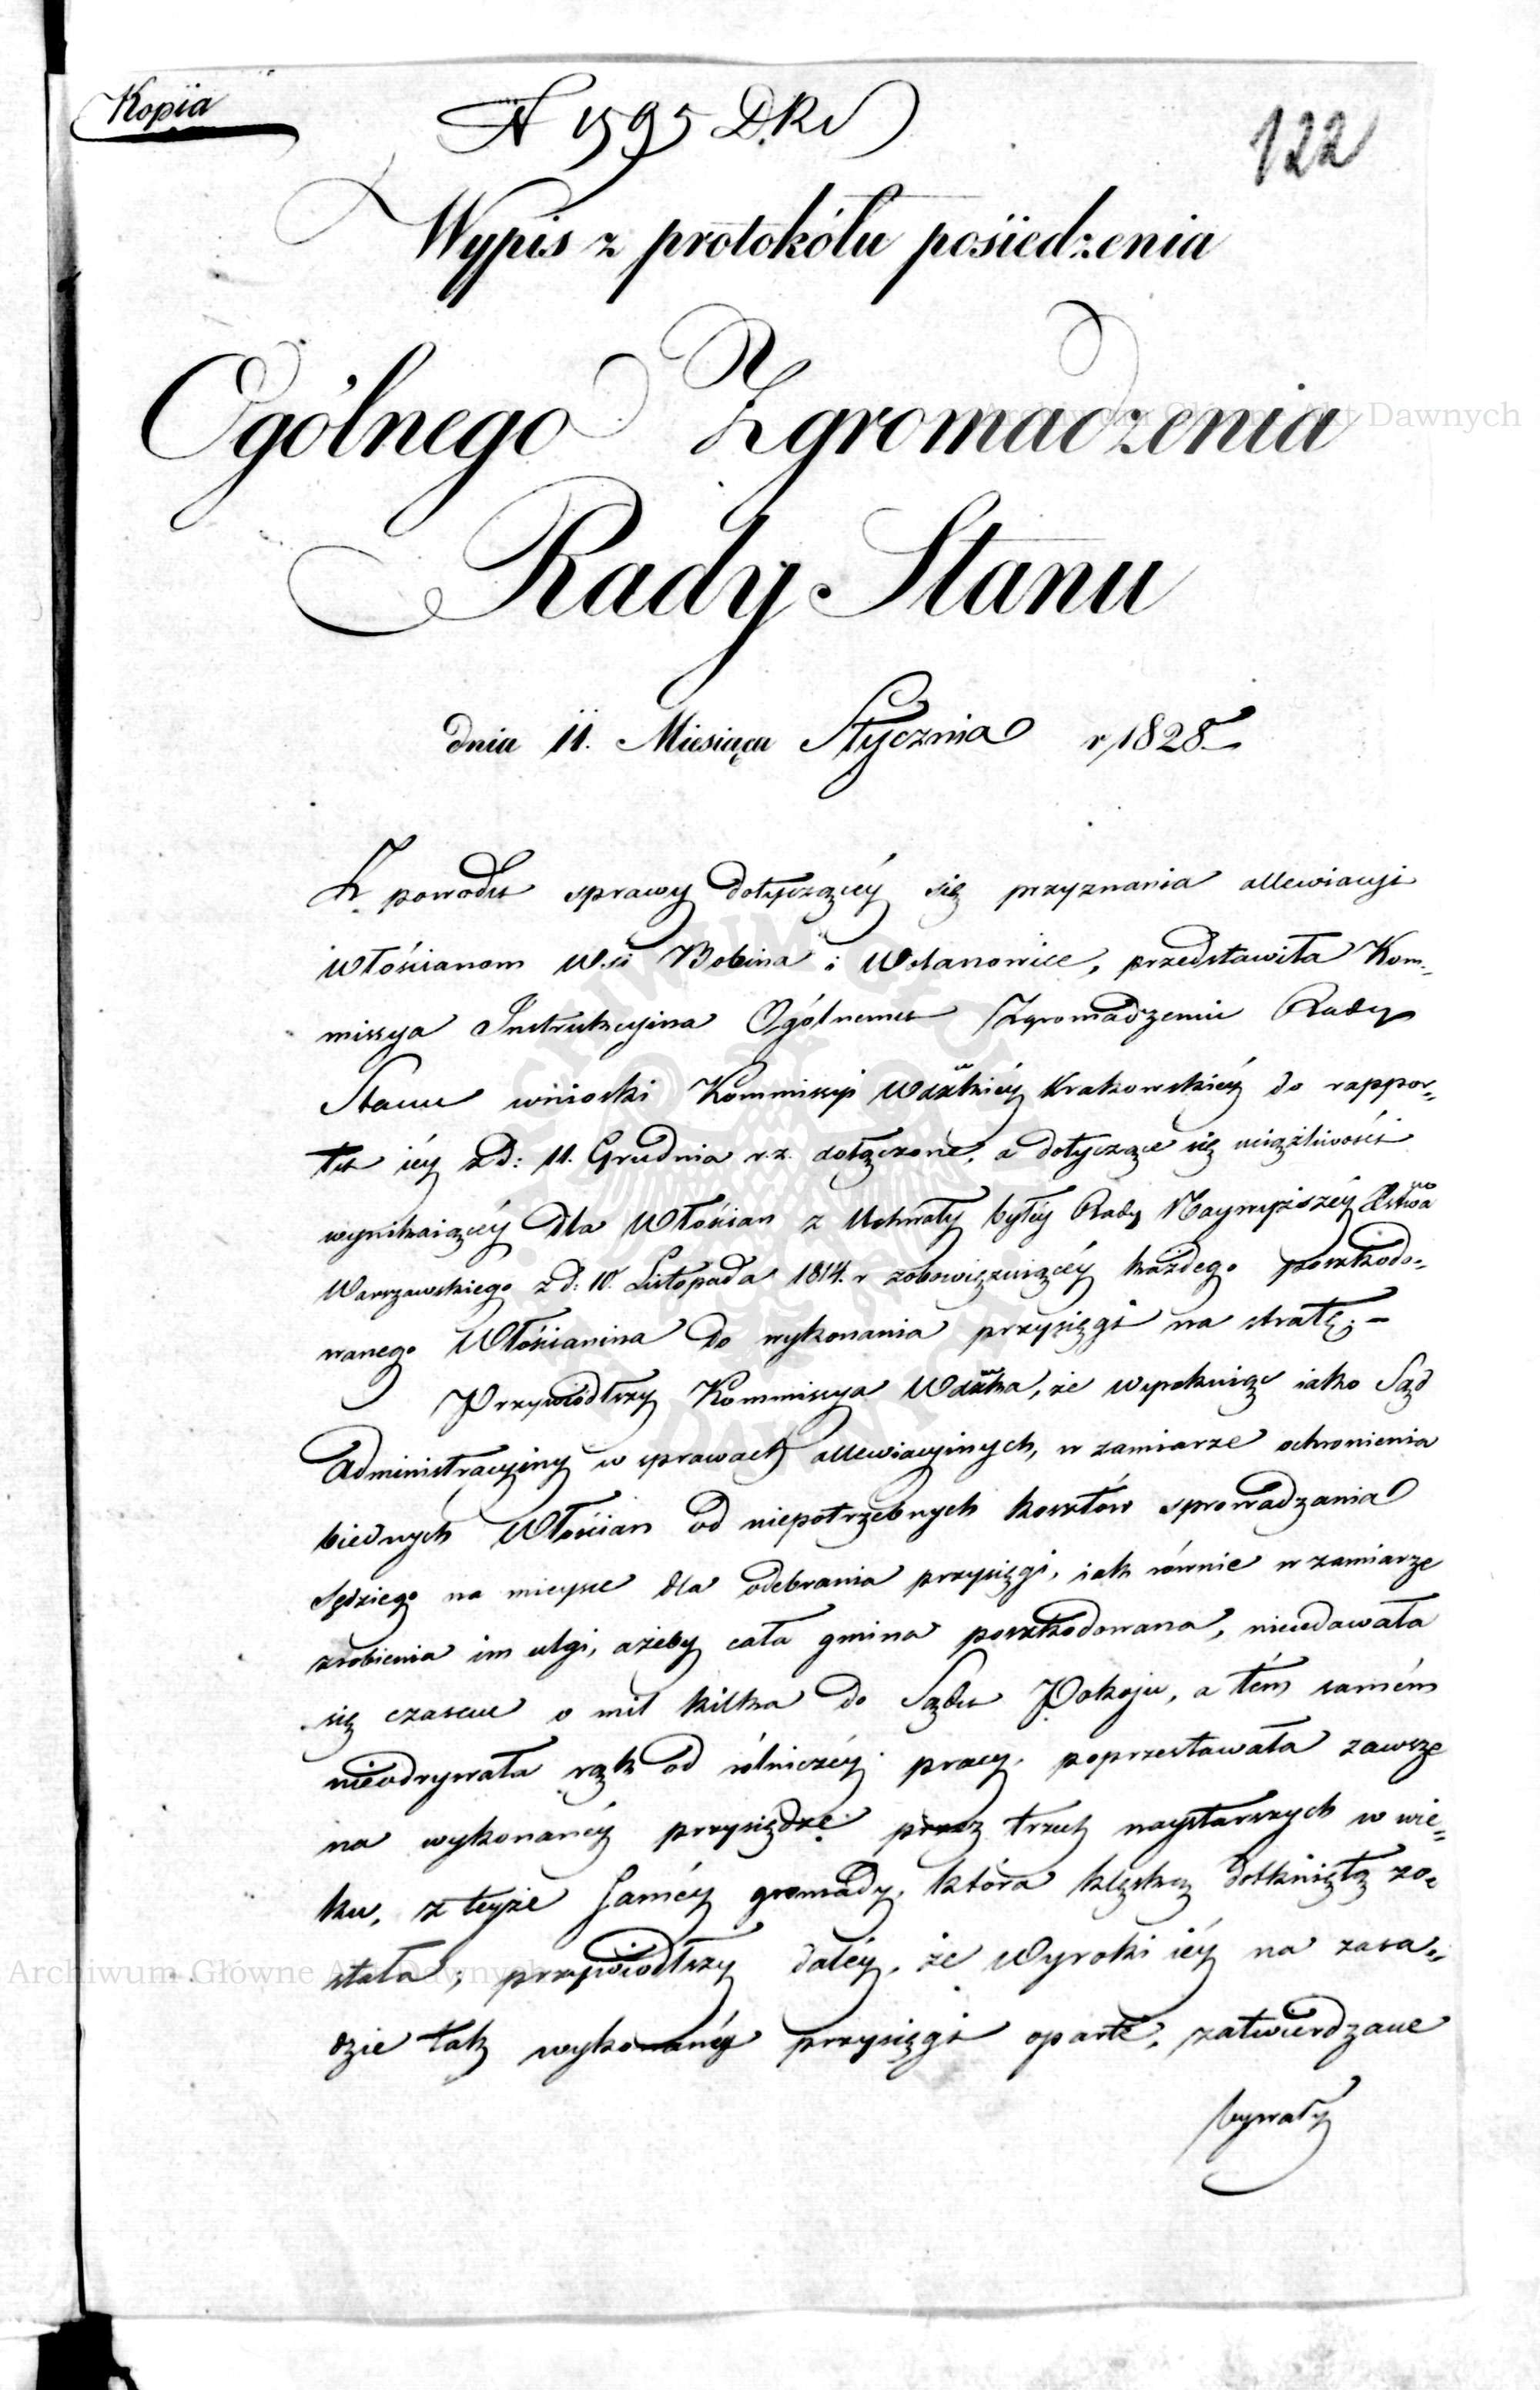 Kopia
N 1595 D.R.S
122
Wypis z protokółu posiedzenia
Ogólnego Zgromadzenia
Rady Stanu
dnia 11. Miesiąca Stycznia r 1828
Z powodu sprawy dotyczącéy się przyznania allewiacyi
Włościanom Wsi Bobina i Wolanowice, przedstawiła Kom-
missya Instrukcyina Ogólnemu Zgromadzeniu Rady
Stanu wnioski Kommissyi Wdzkiéy Krakowskiéy do rappor-
tu iéy z d: 11. Grudnia r. z. dołączone, a dotyczące się uciążliwości
wynikaiącéy dla Włościan z Uchwały byłéy Rady Naywyższéy Xstwa
Warszawskiego z d: 10. Listopada 1814. r zobowięzuiącéy każdego poszkodo-
wanego Włościanina do wykonania przysięgi na stratę; –
Przywiódłszy Kommissya Wdzka, że wyrokuiąc iako Sąd
Administracyiny w sprawach allewiacyinych, w zamiarze ochronienia
biednych Włościan od niepotrzebnych kosztów sprowadzania
Sędziego na mieysce dla odebrania przysięgi, iak równie w zamiarze
zrobienia im ulgi, ażeby cała gmina poszkodowana, nieudawała
się czasem o mil kilka do Sądu Pokoju, a tém samém
nieodrywała rąk od rólniczéy pracy, poprzestawała zawsze
na wykonanéy przysiędze przez trzech naystarszych w wie-
ku, z teyże saméy gromady, która klęską dotkniętą zo-
stała; przywiodłszy daléy, że Wyroki iéy na zasa-
dzie tak wykonanéy przysięgi oparte, zatwierdzane
bywały
Archiwum Główne Akt Dawnych
Archiwum Główne Akt Dawnych